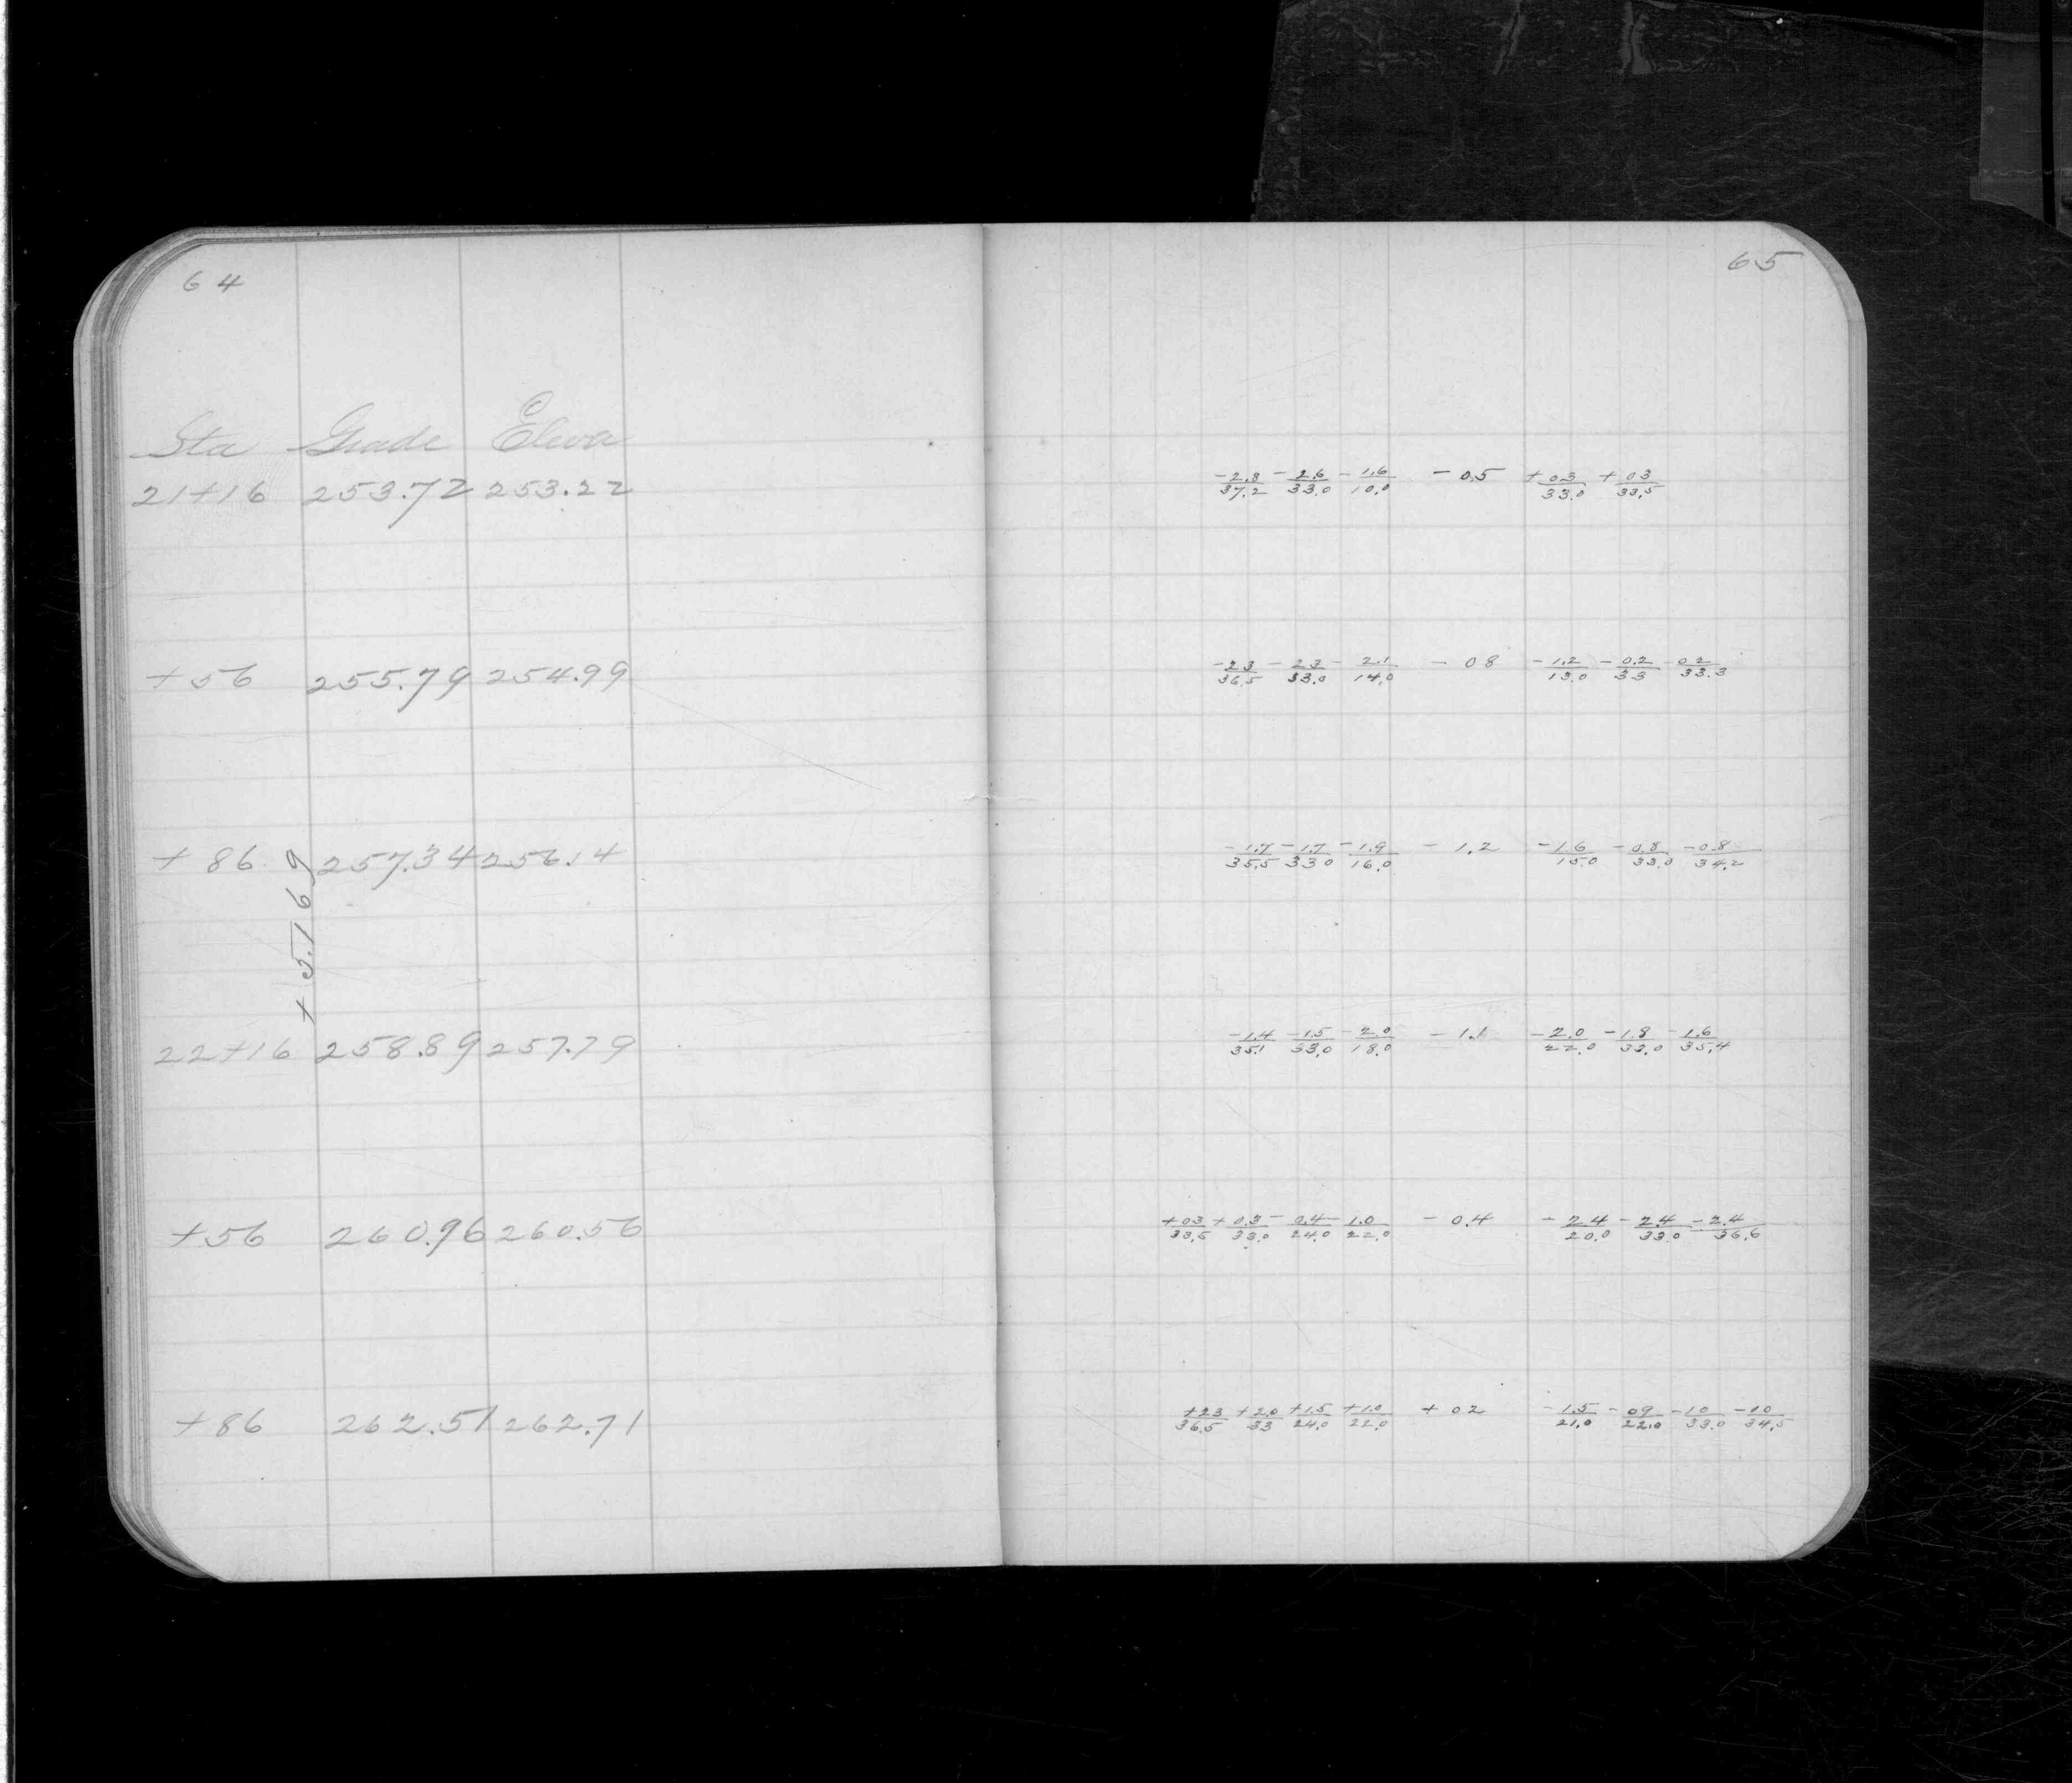 64
Sta Grade Eleva
21+16 253.72 253.22
+56 255.79 254.99
+86 257.34 256.14
+5.169
22+16 258.89 257.79
+56 260.96 260.56
+86 262.51 262.71
65
-2.8/37.2 -2.6/33.0 -1.6/10.0 -0.5 +03/33.0 +03/33.5
-23/36.5 -23/33.0 -2.1/14.0 -08 -1.2/13.0 -0.2/33 -02/33.3
-1.7/35.5 -1.7/330 -1.9/16.0 -1.2 -1.6/15.0 -0.8/33.0 -0.8/34.2
-1.4/35.1 -1.5/33.0 -2.0/18.0 -1.1 -2.0/22.0 -1.8/33.0 -1.6/35.4
+03/33.5 +0.3/33.0 -0.4/24.0 -1.0/22.0 -0.4 -2.4/20.0 -2.4/33.0 -2.4/36.6
+23/36.5 +2.0/33 +1.5/24.0 +1.0/22.0 +02 -1.5/21.0 -09/22.0 -10/33.0 -10/34.5